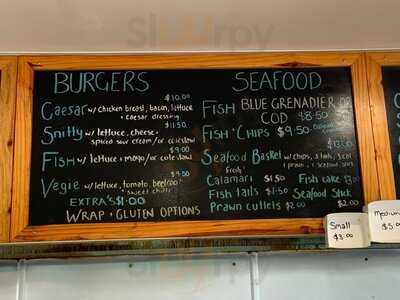 BURGERS
$10.00
Caesar w/ chicken breast, bacon, lettuce
+ caesar dressing
$11.50
Snitty w/ lettuce, cheese,
spiced sour cream / or coleslaw
$9.00
Fish w/ lettuce + mayo / or coleslaw
$9.50
Vegie w/ lettuce, tomato, beetroot
+ sweet chilli
EXTRA'S $1.00
WRAP + GLUTEN OPTIONS
SEAFOOD
FISH BLUE GRENADIER OR
COD $8.50
FISH + CHIPS $9.50
$13.00
Seafood Basket w/ chips,
Calamari $1.50 Fish cake
Fish tails $1.50 Seafood Stick
Prawn cutlets $2.00 $2.00
Small
$3.00
Medium
$5.0